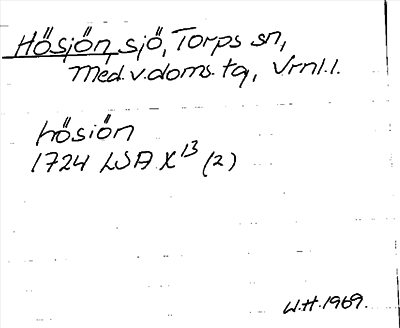 Hösjön, sjö, Torps sn,
Med.v.doms. tg, Vrnl.l.
hösiön
1724 LSA X13 (2)
W.H. 1969.